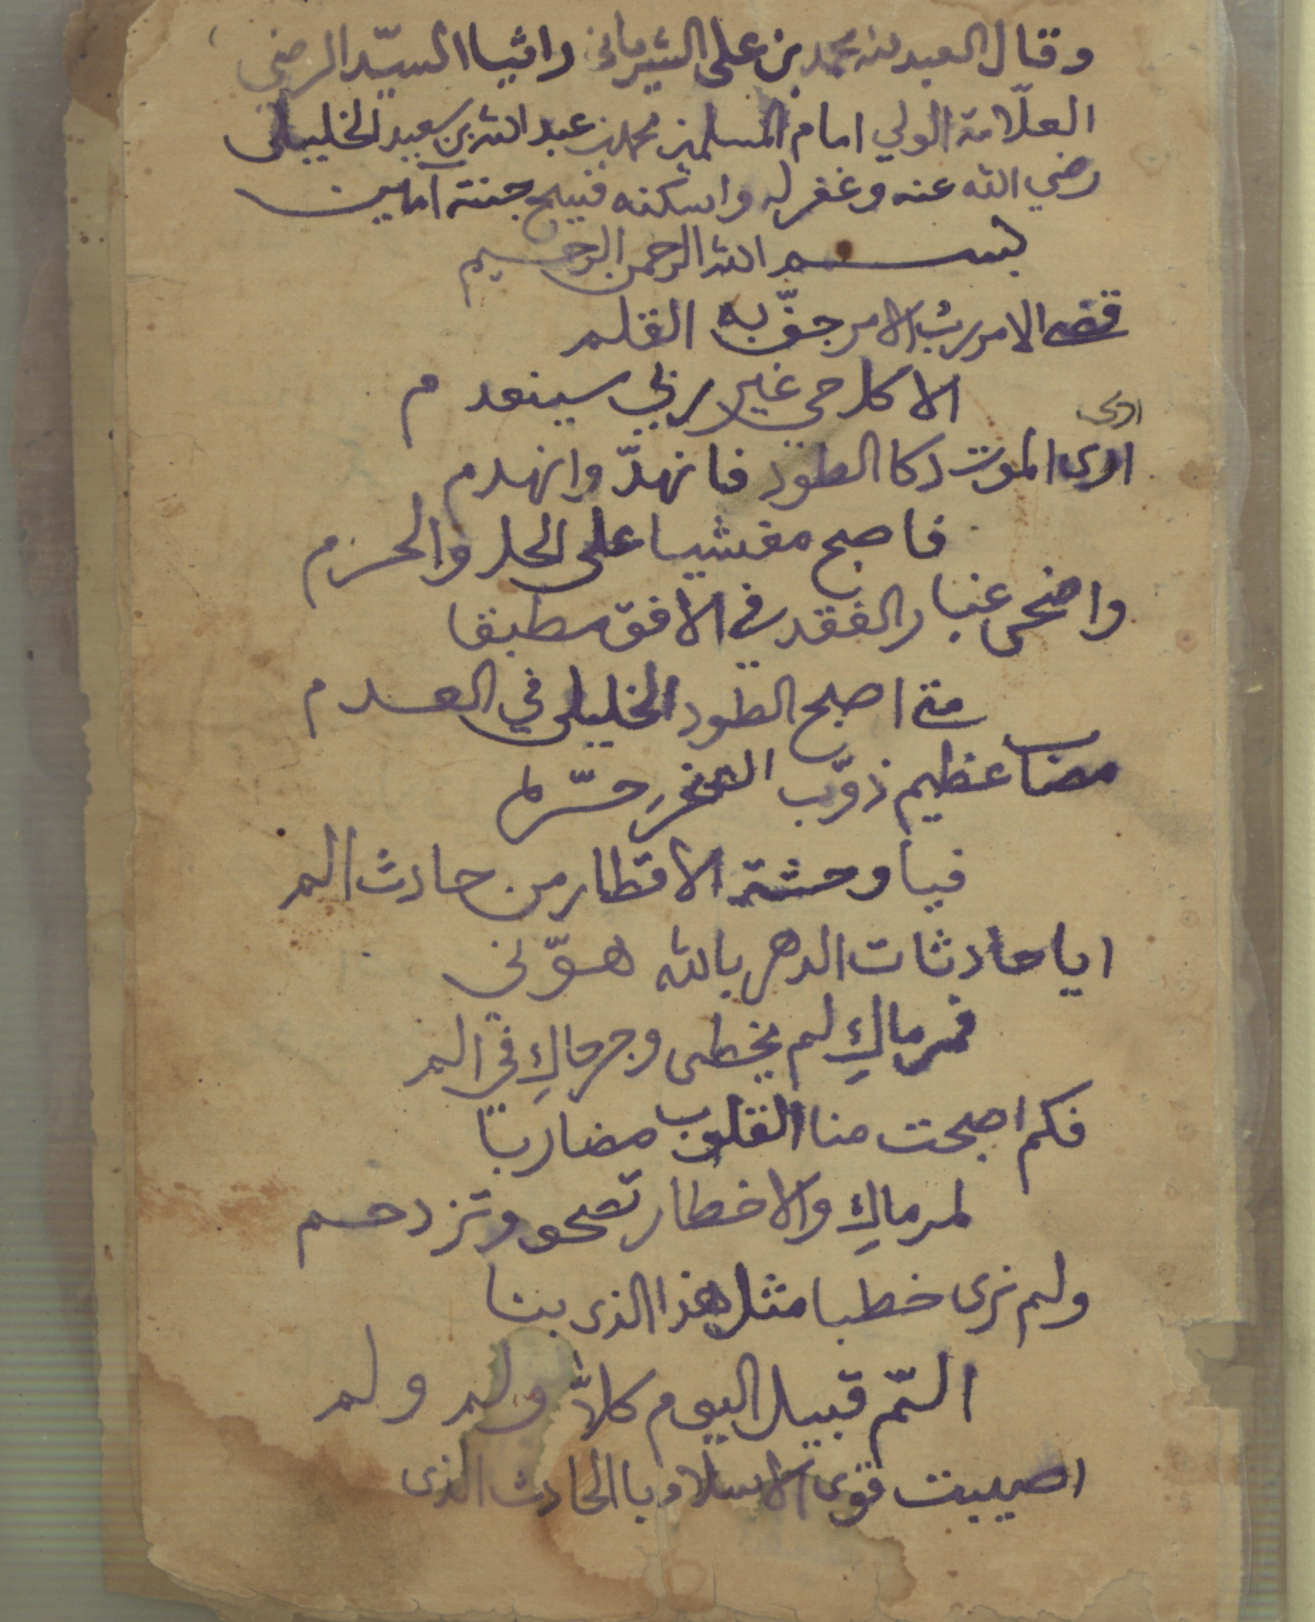 وقال العبد لله محمد بن علي الشرياني راثيا السيّد الرضي
العلّامة الولي امام المسلمين محمد بن عبد الله بن سعيد الخليلي
رضي الله عنه وغفر له واسكنه فسيح جنته آمين
بسم الله الرحمن الرحيم
قضى الامر ربّ الامر جفّ به القلم
الا كل حي غير ربي سينعدم
ارى
ارى الموت دكا الطود فانهدّ وانهدم
فاصبح مغشيا على الحل والحرم
واضحى غبار الفقد في الافق مطبقا
متى اصبح الطود الخليلي في العدم
مصاب عظيم ذوّب الصخر حرّها
فيا وحشة الاقطار من حادث الم
ايا حادثات الدهر بالله هوّني
فمرماكِ لم يخطى وجرحاكِ في الم
فكم اصبحت منا القلوب مضاربا
لمرماكِ والاخطار تصحو وتزدحم
ولم نرى خطبا مثل هذا الذى بنا
المّ قبيل اليوم كلاّ ولم ولم
اصيبت قوى الاسلام بالحادث الذى